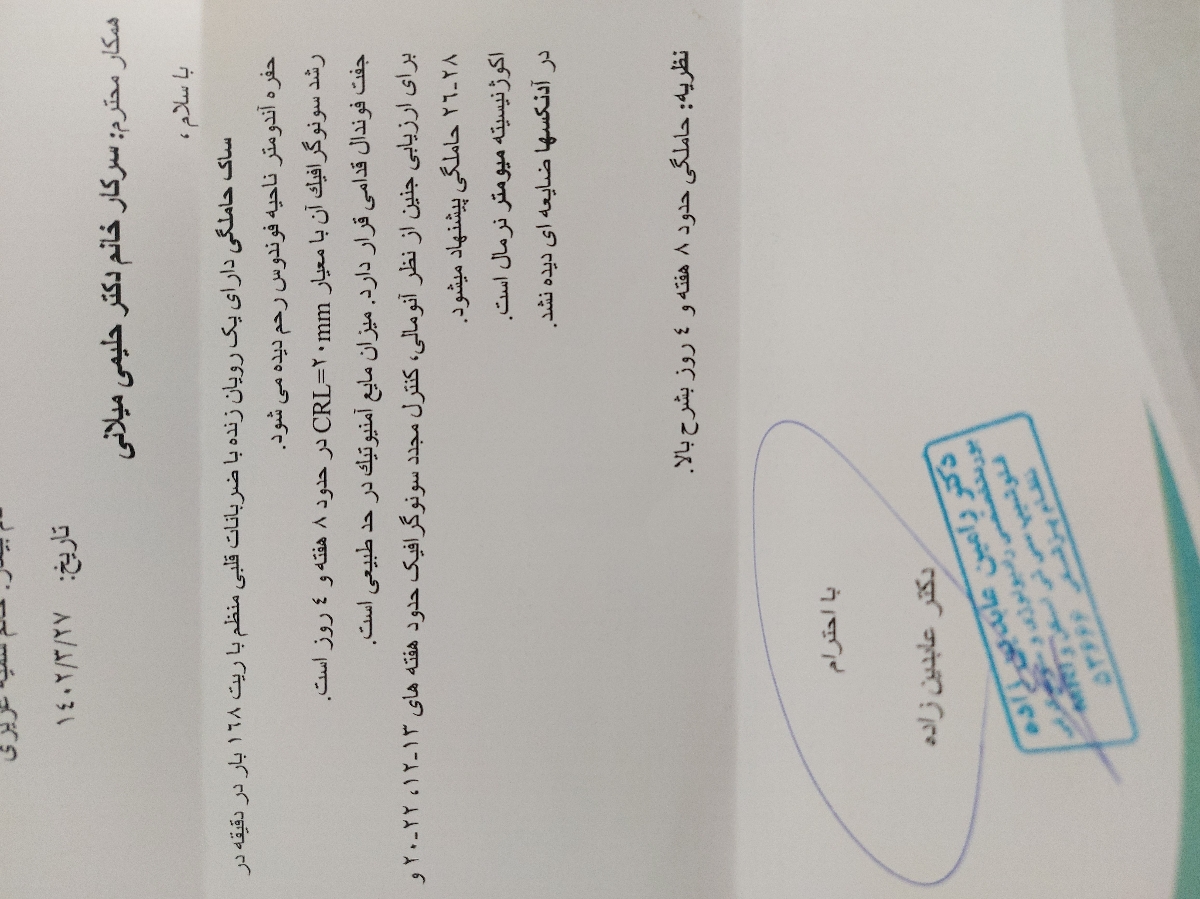 خانم سمیه عزیزی
تاریخ: ١٤٠٢/٣/٢٧
همکار محترم: سرکار خانم دکتر حلیمی میلانی
با سلام ،
ساک حاملگی دارای یک رویان زنده با ضربانات قلبی منظم با ریت ١٦٨ بار در دقیقه در
حفره آندومتر ناحیه فوندوس رحم دیده می شود.
رشد سونوگرافیك آن با معیار CRL=٢٠mm در حدود ٨ هفته و ٤ روز است.
جفت فوندال قدامی قرار دارد. میزان مایع آمنیوتیك در حد طبیعی است.
برای ارزیابی جنین از نظر آنومالی، کنترل مجدد سونوگرافیک حدود هفته های ١٣-١٢، ٢٢-٢٠ و
٢٨-٢٦ حاملگی پیشنهاد میشود.
اکوژنیسیته میومتر نرمال است.
در آدنکسها ضایعه ای دیده نشد.
نظریه: حاملگی حدود ٨ هفته و ٤ روز بشرح بالا.
با احترام
دکتر عابدین زاده
دکتر رامین عابدین زاده
MRI